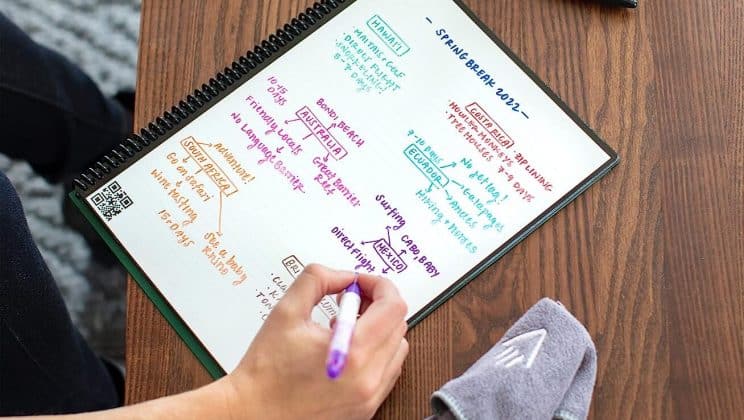 - SPRING BREAK 2022 -
HAWAI'I
MAI TAIS + GOLF
• DIRECT FLIGHT
SNORKELING!
8-9 DAYS
COSTA RICA
• ZIPLINING
• HOWLING MONKEYS
• TREE HOUSES
7-9 DAYS
10-15 DAYS
BONDI BEACH
AUSTRALIA
Friendly Locals
No Language Barrier
Great Barrier
Reef
7-10 DAYS
ECUADOR
No jet lag!
Galapagos
Hiking +
SOUTH AFRICA
adventure!
Go on safari
Wine tasting
15 DAYS
See a baby
Rhino
Surfing
MEXICO
CABO, BABY
Direct Flight